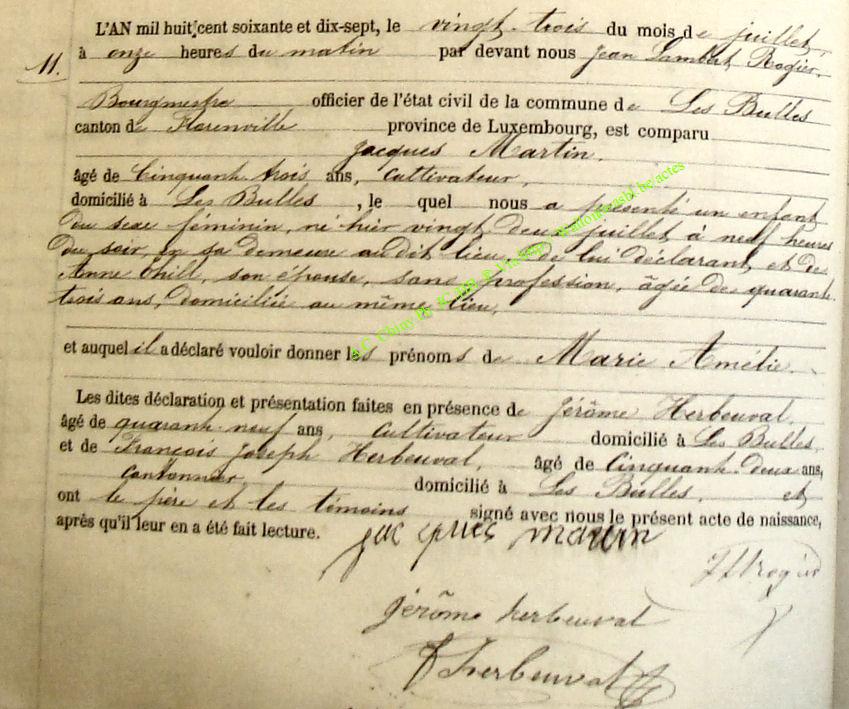 L'AN mil huit cent soixante et dix-sept, le vingt-trois du mois de juillet,
à onze heures du matin par devant nous Jean Lambert Rogier,
11.
Bourgmestre officier de l'état civil de la commune de Les Bulles
canton de Florenville province de Luxembourg, est comparu
Jacques Martin,
âgé de Cinquante trois ans, Cultivateur,
domicilié à Les Bulles, le quel nous a présenté un enfant
du sexe féminin, né hier vingt deux juillet à neuf heures
du soir, en sa demeure au dit lieu, de lui déclarant et de
Anne Thill, son épouse, sans profession, âgée de quarante
trois ans, domiciliée au même lieu,
et auquel il a déclaré vouloir donner les prénoms de Marie Amélie.
Les dites déclaration et présentation faites en présence de Jérôme Herbeuval,
âgé de quarante neuf ans, Cultivateur domicilié à Les Bulles,
et de François Joseph Herbeuval, âgé de Cinquante-deux ans,
Cantonnier, domicilié à Les Bulles, et
ont le père et les témoins signé avec nous le présent acte de naissance,
après qu'il leur en a été fait lecture.
jacques martin
Jérôme herbeuval
herbeuval